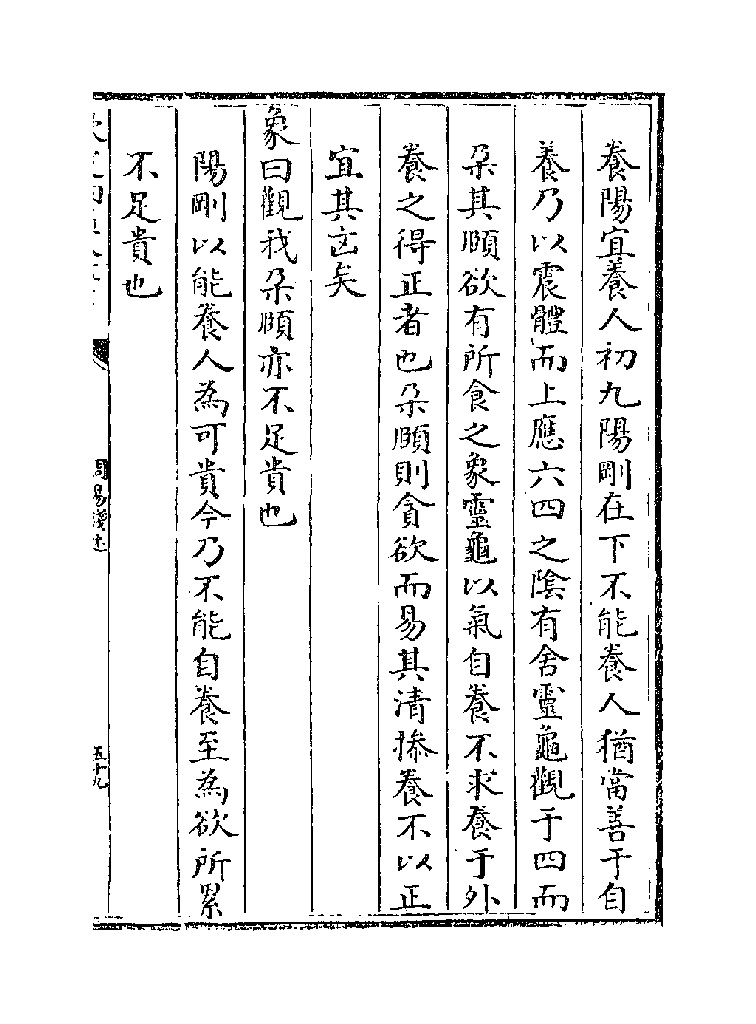 養陽宜養人初九陽剛在下不能養人猶當善于自
養乃以震體而上應六四之陰有舍靈龜觀于四而
朶其頤欲有所食之象靈龜以氣自養不求養于外
養之得正者也朶頤則貪欲而易其清操養不以正
宜其凶矣
象曰觀我朶頤亦不足貴也
陽剛以能養人為可貴今乃不能自養至為欲所累
不足貴也
周易淺述
五十九